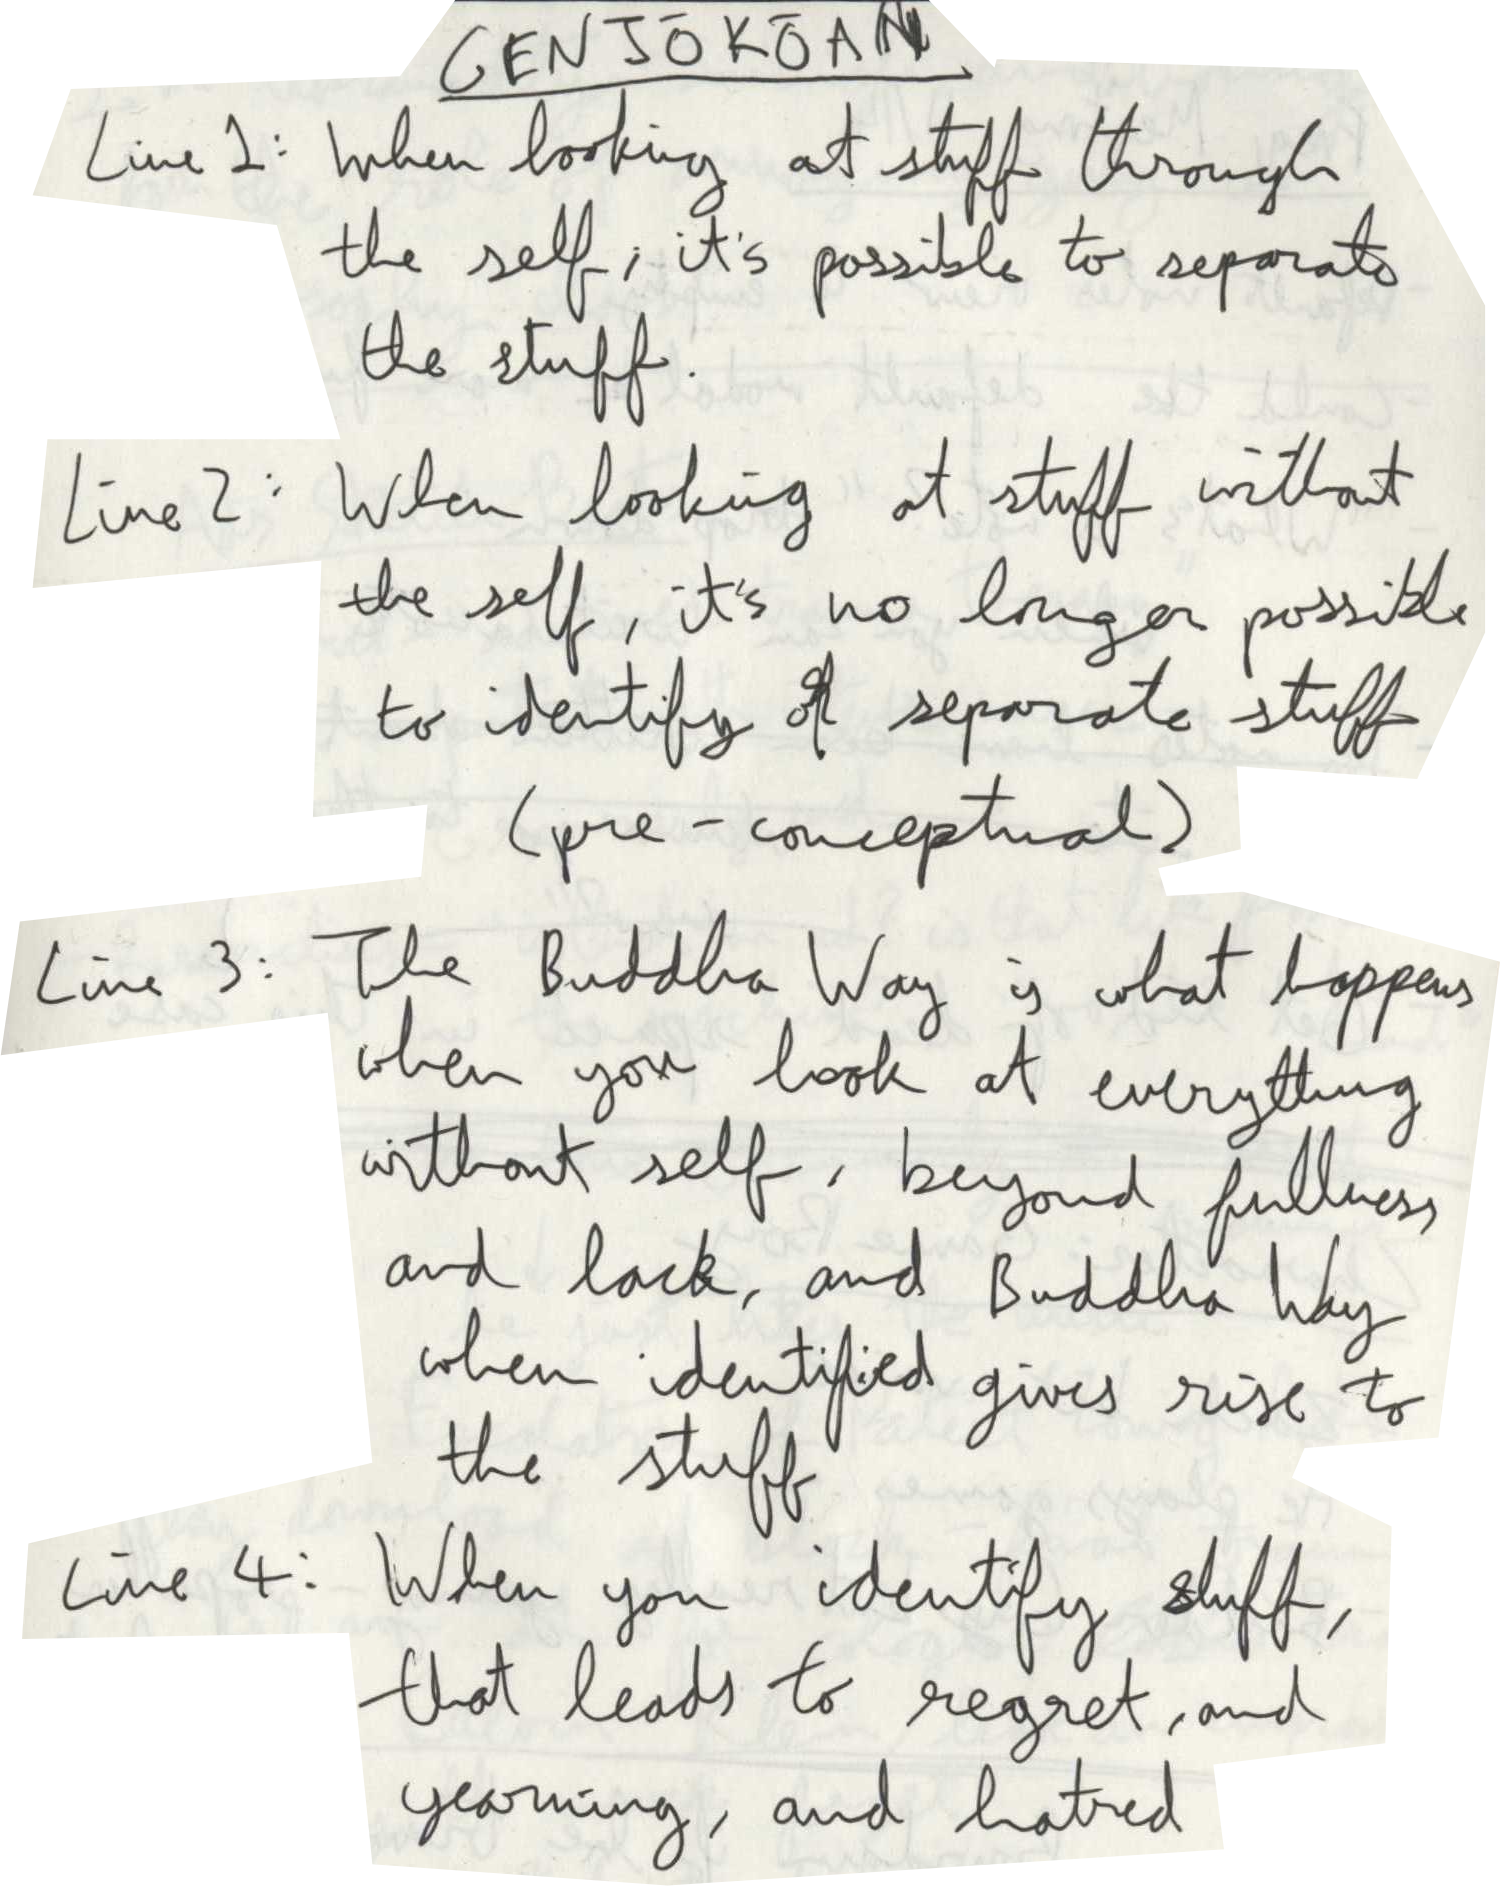 GENJŌKŌAN
Line 1: When looking at stuff through
the self, it's possible to separate
the stuff.
Line 2: When looking at stuff without
the self, it's no longer possible
to identify separate stuff
(pre-conceptual)
Line 3: The Buddha Way is what happens
when you look at everything
without self, beyond fullness
and lack, and Buddha Way
when identified gives rise to
the stuff
Line 4: When you identify stuff,
that leads to regret, and
yearning, and hatred